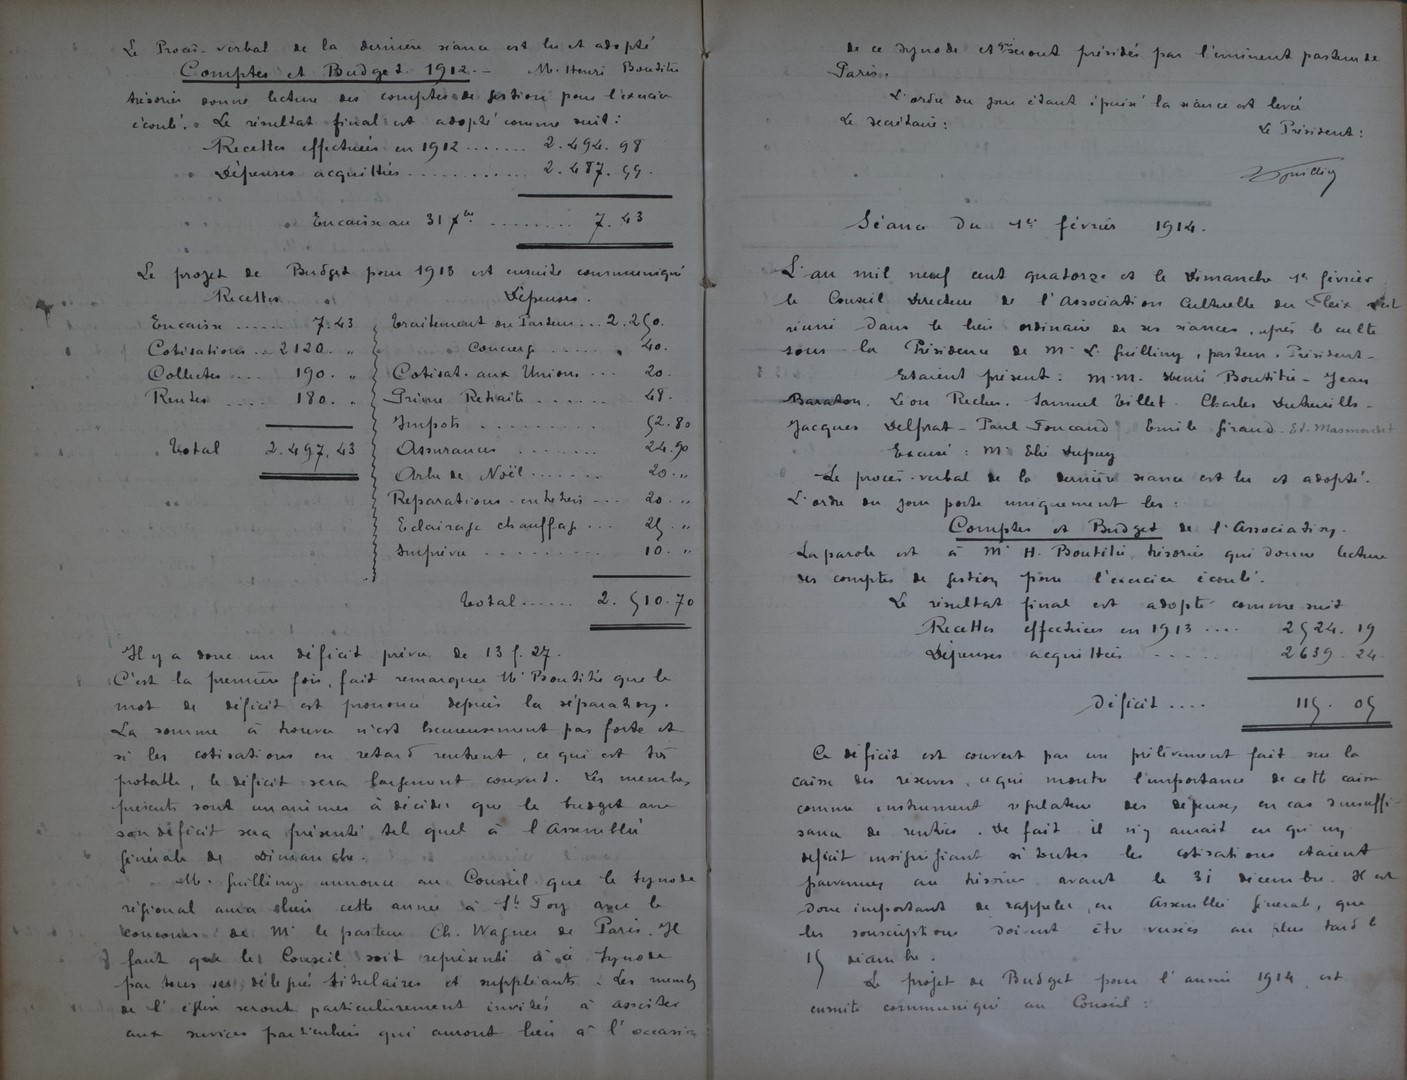 Le Procès-verbal de la dernière séance est lu et adopté
Comptes et Budget 1912. – M. Henri Boutitié
trésorier donne lecture des comptes de gestion pour l'exercice
écoulé. Le résultat final est adopté comme suit :
Recettes effectuées en 1912 ....... 2.494.98
Dépenses acquittées ............ 2.487.55.
Encaisse au 31 Xbre ........ 7.43
Le projet de Budget pour 1913 est ensuite communiqué
Recettes Dépenses.
Encaisse ...... 7.43 Traitement du Pasteur ... 2.250.
Cotisations .. 2120. " Concierge ..... 40.
Collectes ... 190. " Cotisat. aux Unions ... 20.
Rentes .... 180. " Prime Retraite ...... 48.
Impots ......... 52.80
Total 2.497.43 Assurances ....... 24.90
Arbre de Noël ...... 20. "
Réparations-entretien ... 20. "
Eclairage chauffage ... 25. "
Imprévu ......... 10. "
Total ...... 2.510.70
Il y a donc un déficit prévu de 13 f. 27.
C'est la première fois, fait remarquer Mr Boutitié que le
mot de déficit est prononcé depuis la séparation.
La somme à trouver n'est heureusement pas forte et
si les cotisations en retard rentrent, ce qui est très
probable, le déficit sera largement couvert. Les membres
présents sont unanimes à décider que le budget avec
son déficit sera présenté tel quel à l'Assemblée
générale de Dimanche.
M. Guilliny annonce au Conseil que le Synode
régional aura lieu cette année à Ste Foy avec le
concours de Mr le pasteur Ch. Wagner de Paris. Il
faut que le Conseil soit représenté à ce Synode
par tous ses délégués titulaires et suppléants. Les membres
de l'église seront particulièrement invités à assister
aux services particuliers qui auront lieu à l'occasion
de ce Synode et seront présidés par l'éminent pasteur de
Paris.
L'ordre du jour étant épuisé la séance est levée
Le secrétaire : Le Président :
Séance du 1er février 1914.
L'an mil neuf cent quatorze et le Dimanche 1er février
le Conseil Directeur de l'Association Cultuelle du Fleix s'est
réuni dans le lieu ordinaire de ses séances, après le culte
sous la Présidence de Mr L. Guilliny, pasteur, Président –
Etaient présent : M.M. Henri Boutitié – Jean
Baraton. Léon Recher. Samuel Tillet. Charles Dutreuilh –
Jacques Delprat – Paul Foucaud Emile Giraud. Ed. Masmontet
Excusé : Mr Elie Dupuy
Le procès-verbal de la dernière séance est lu et adopté.
L'ordre du jour porte uniquement les :
Comptes et Budget de l'Association.
La parole est à Mr H. Boutitié, trésorier qui donne lecture
des comptes de gestion pour l'exercice écoulé.
Le résultat final est adopté comme suit
Recettes effectuées en 1913 .... 2524. 19
Dépenses acquittées ..... 2639. 24
Déficit .... 115. 05
Ce déficit est couvert par un prélèvement fait sur la
caisse des réserves, ce qui montre l'importance de cette caisse
comme instrument régulateur des dépenses, en cas d'insuffi-
sance de rentrées. De fait il n'y aurait eu qu'un
déficit insignifiant si toutes les cotisations étaient
parvenues au trésorier avant le 31 décembre. Il est
donc important de rappeler, en Assemblée générale, que
les souscriptions doivent être versées au plus tard le
15 décembre.
Le projet de Budget pour l'année 1914 est
ensuite communiqué au Conseil :